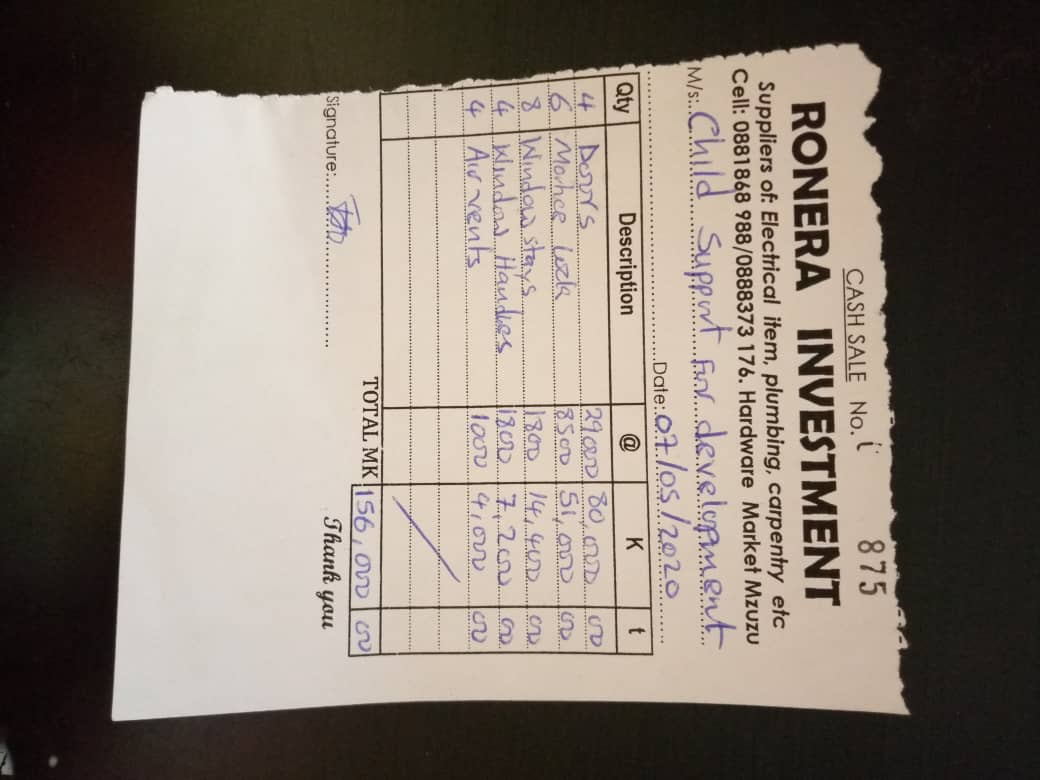 CASH SALE No. 875
RONERA INVESTMENT
Suppliers of: Electrical item, plumbing, carpentry etc
Cell: 0881868 988/0888373 176. Hardware Market Mzuzu
M/s: Child Support For development
Date: 07/05/2020
Qty Description @ K t
4 Doors 80,000 00
6 Mortice lock 8500 51,000 00
8 Window stays 1800 14,400 00
4 Window Handles 1800 7,200 00
4 Air vents 1000 4,000 00
TOTAL MK 156,000 00
Signature: Thank you